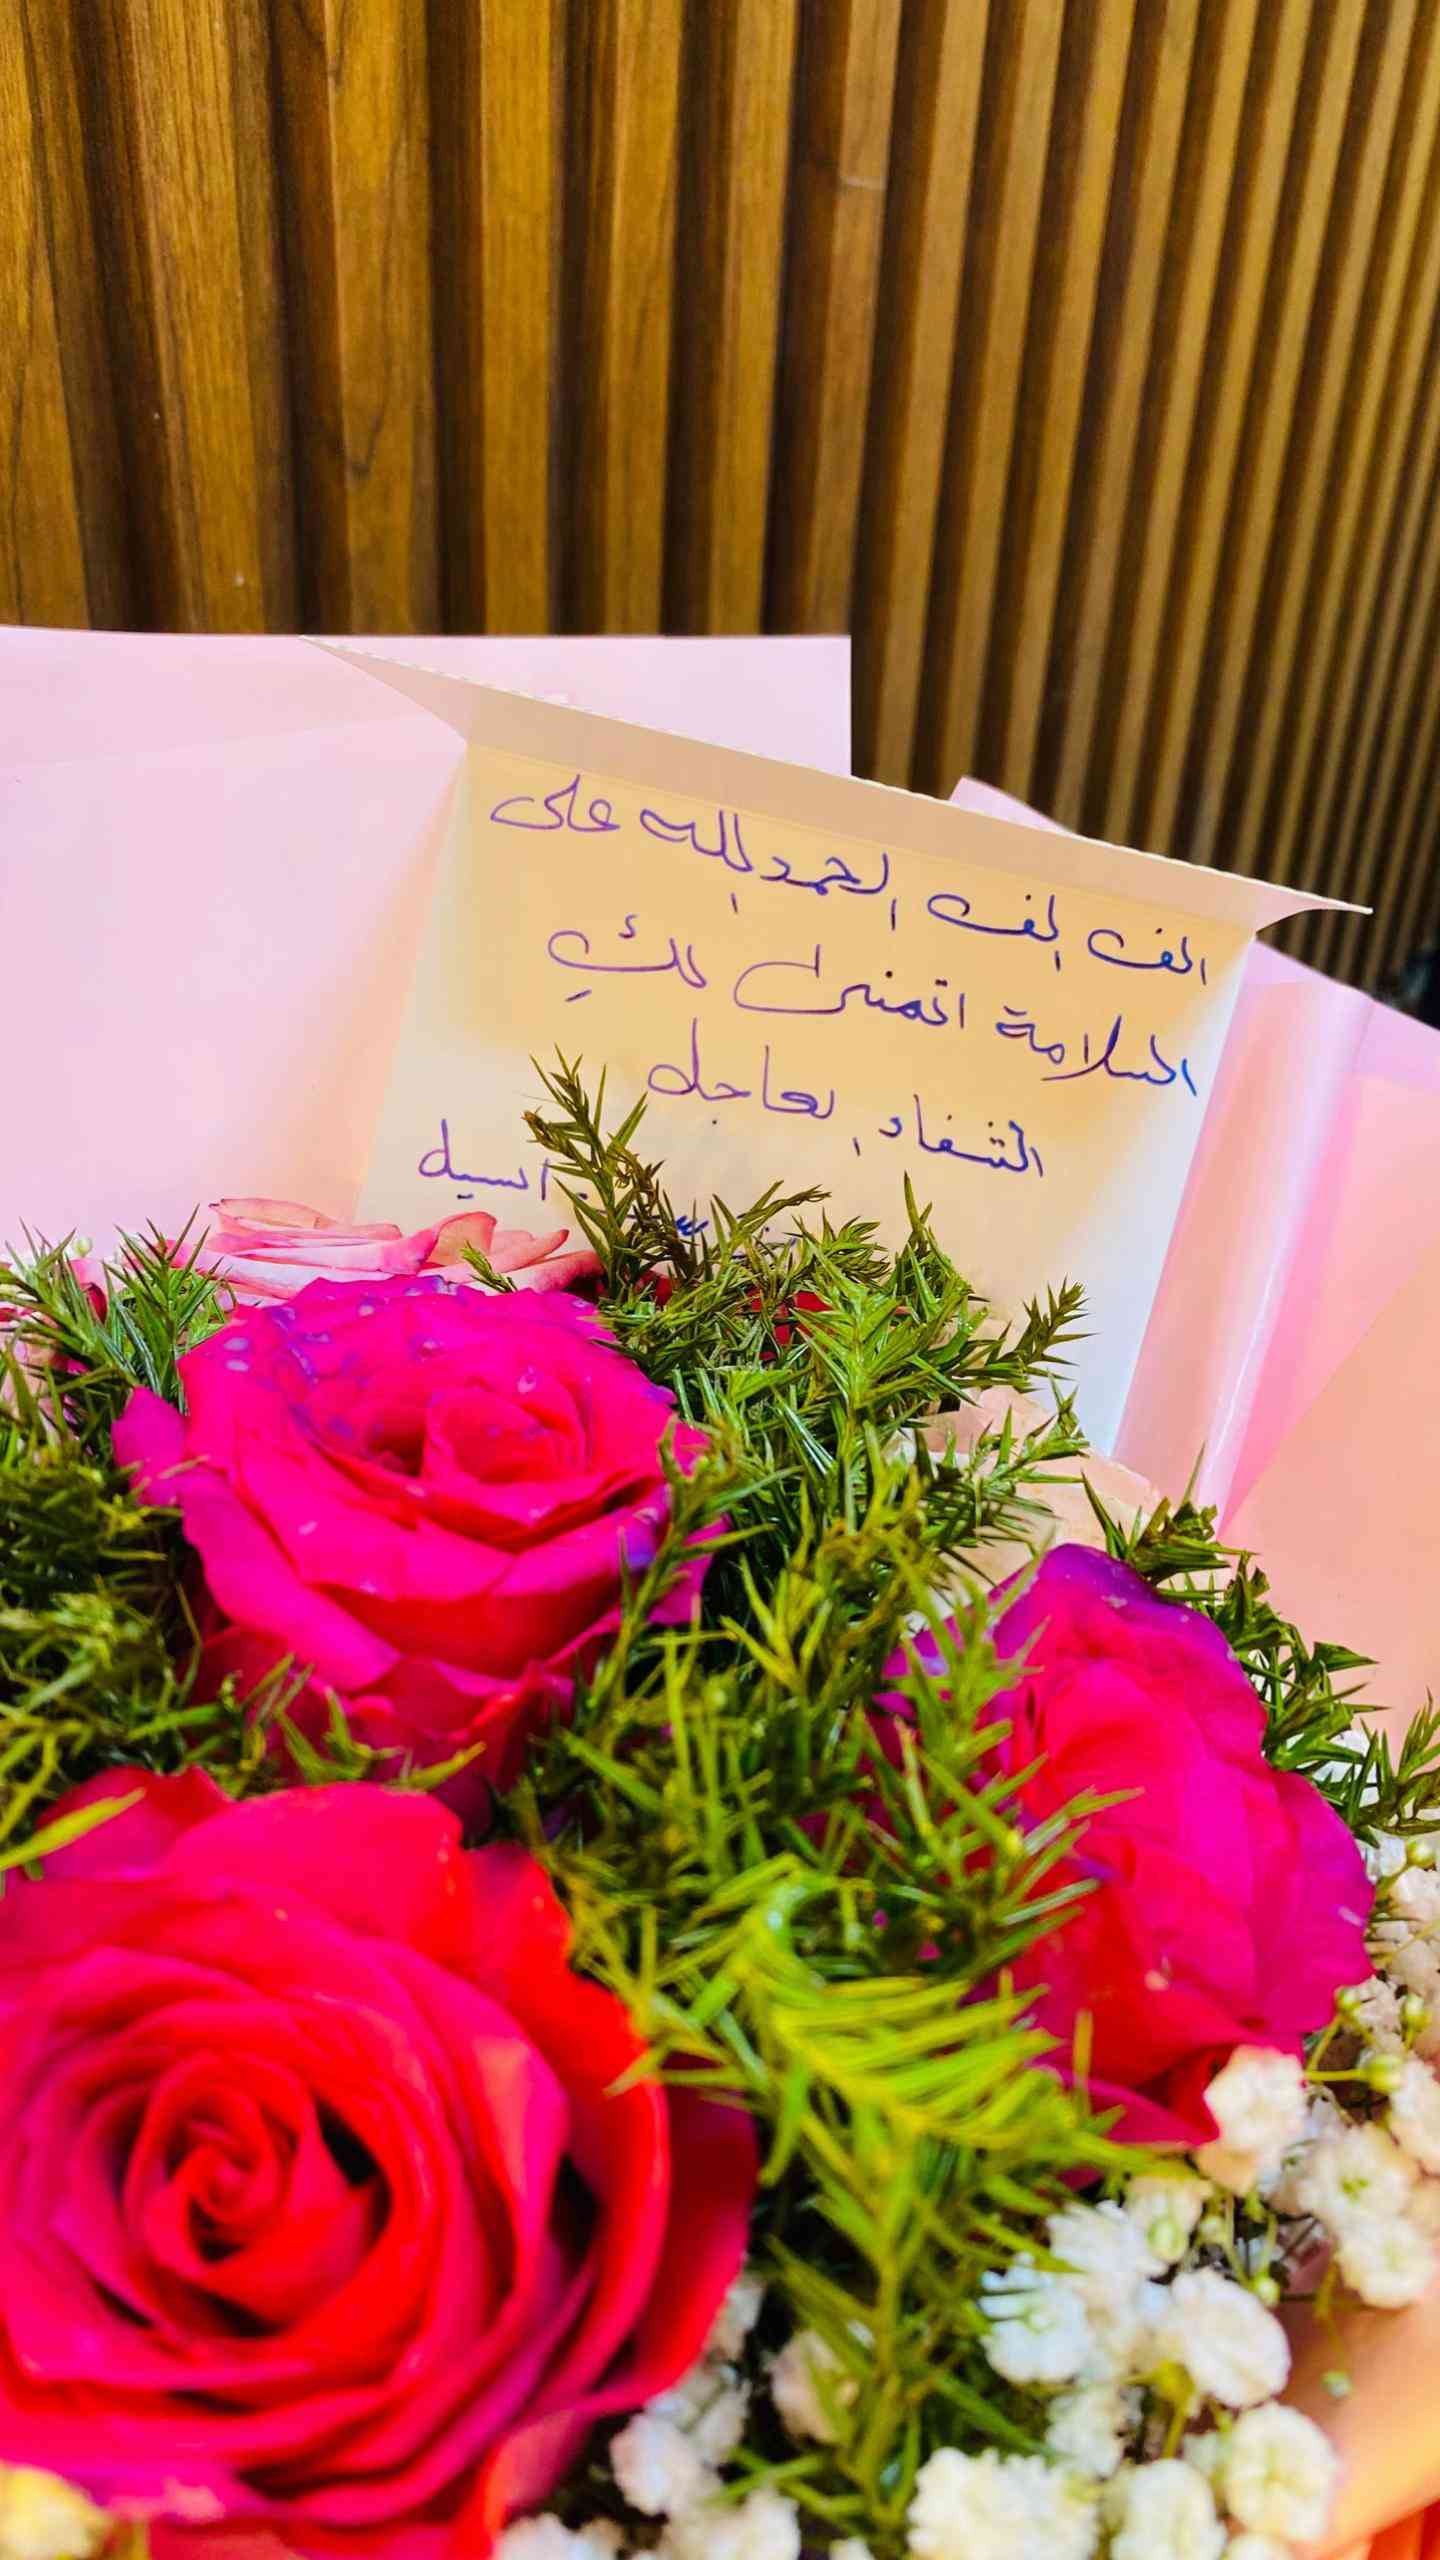 الف الف الحمدلله على
السلامة اتمنى لكِ
الشفاء العاجل
اسيل